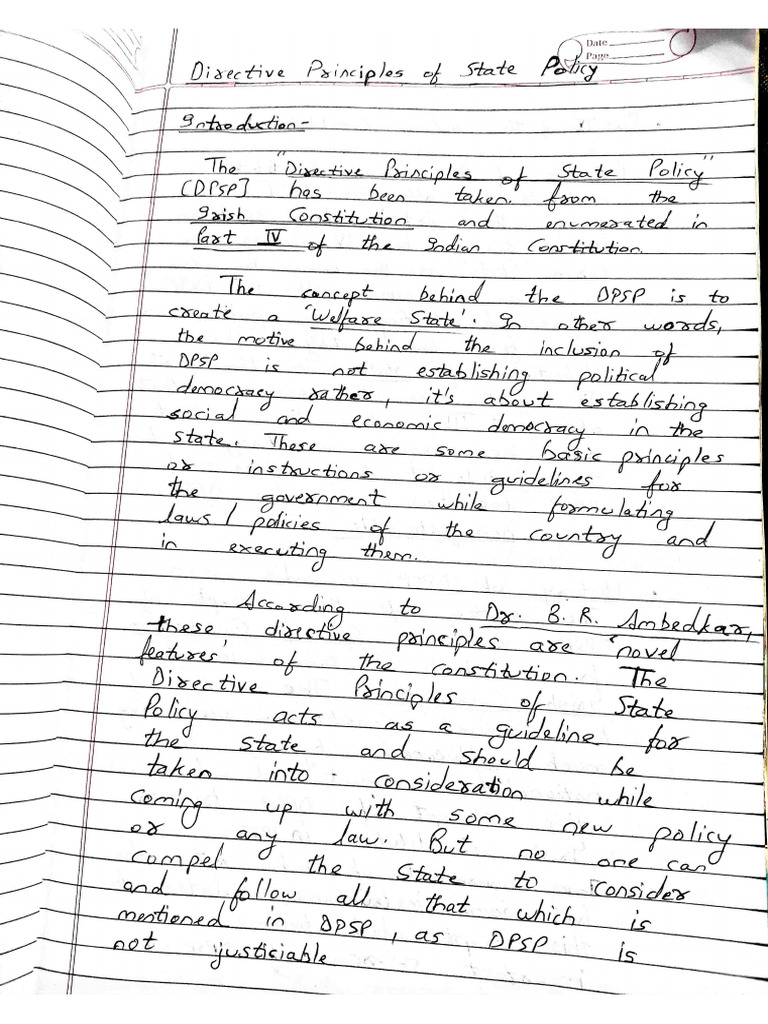 Date
Page
Directive Principles of State Policy
Introduction-
The "Directive Principles of State Policy"
[DPSP] has been taken from the
Irish Constitution and enumerated in
Part IV of the Indian Constitution.
The concept behind the DPSP is to
create a 'Welfare State'. In other words,
the motive behind the inclusion of
DPSP is not establishing political
democracy rather, it's about establishing
social and economic democracy in the
state. These are some basic principles
or instructions or guidelines for
the government while formulating
laws/policies of the country and
in executing them.
According to Dr. B. R. Ambedkar,
these directive principles are 'novel
features' of the constitution. The
Directive Principles of State
Policy acts as a guideline for
the state and should be
taken into consideration while
coming up with some new policy
or any law. But no one can
compel the State to consider
and follow all that which is
mentioned in DPSP, as DPSP is
not justiciable